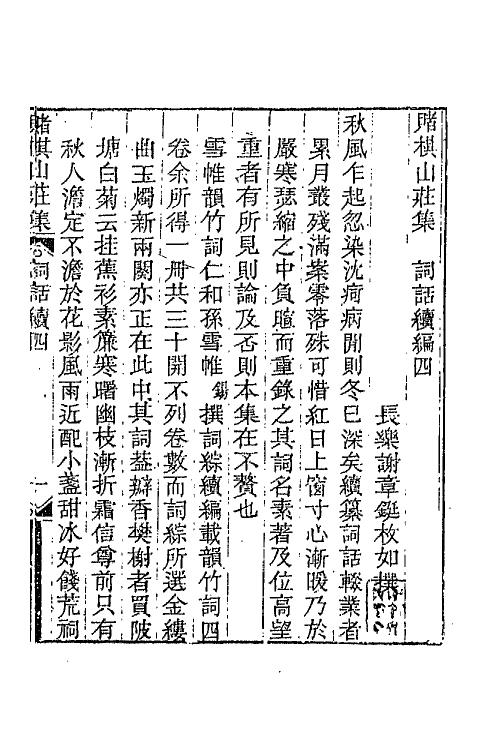 賭棋山莊集　詞話續編四
長樂謝章鋌枚如撰
秋風乍起忽染沈疴病閒則冬已深矣續纂詞話輟業者
累月叢殘滿案零落殊可惜紅日上窗寸心漸暖乃於
嚴寒瑟縮之中負暄而重錄之其詞名素著及位高望
重者有所見則論及否則本集在不贅也
雪帷韻竹詞仁和孫雪帷錫撰詞綜續編載韻竹詞四
卷余所得一冊共三十開不列卷數而詞綜所選金縷
曲玉燭新兩闋亦正在此中其詞葢瓣香樊榭者買陂
塘白菊云挂蕉衫素簾寒曙幽枝漸折霜信尊前只有
秋人澹定不澹於花影風雨近配小盞甜冰好餞荒祠
賭棋山莊集　詞話續四　一